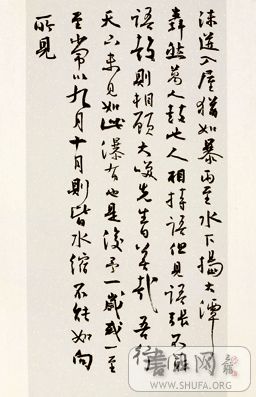 沫迸入屋猶如暴雨至水下搗大潭
轟然萬人鼓也人相持語但見語張不聞
語聲則相顧大笑先生曰壯哉吾行
天下未見如此瀑布也是後予一歲或一至
至常以九月十月則皆水縮不能如向
所見
WWW.SHUFA.ORG